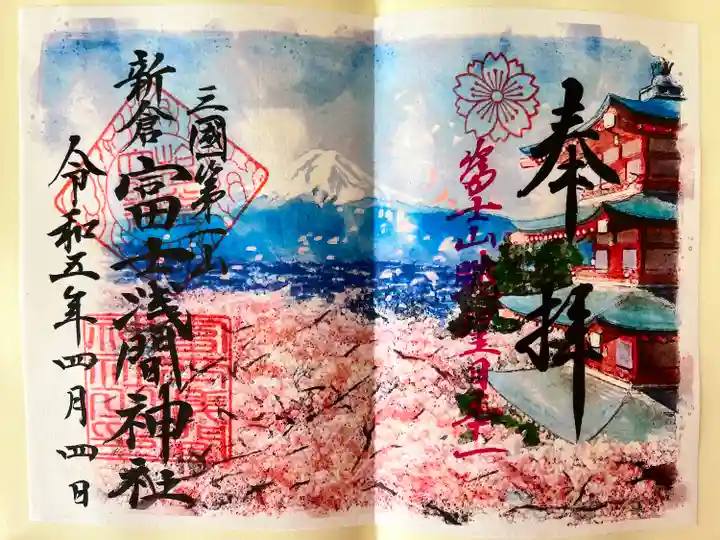 奉拝
富士山
三國第一山
新倉富士浅間神社
令和五年四月四日